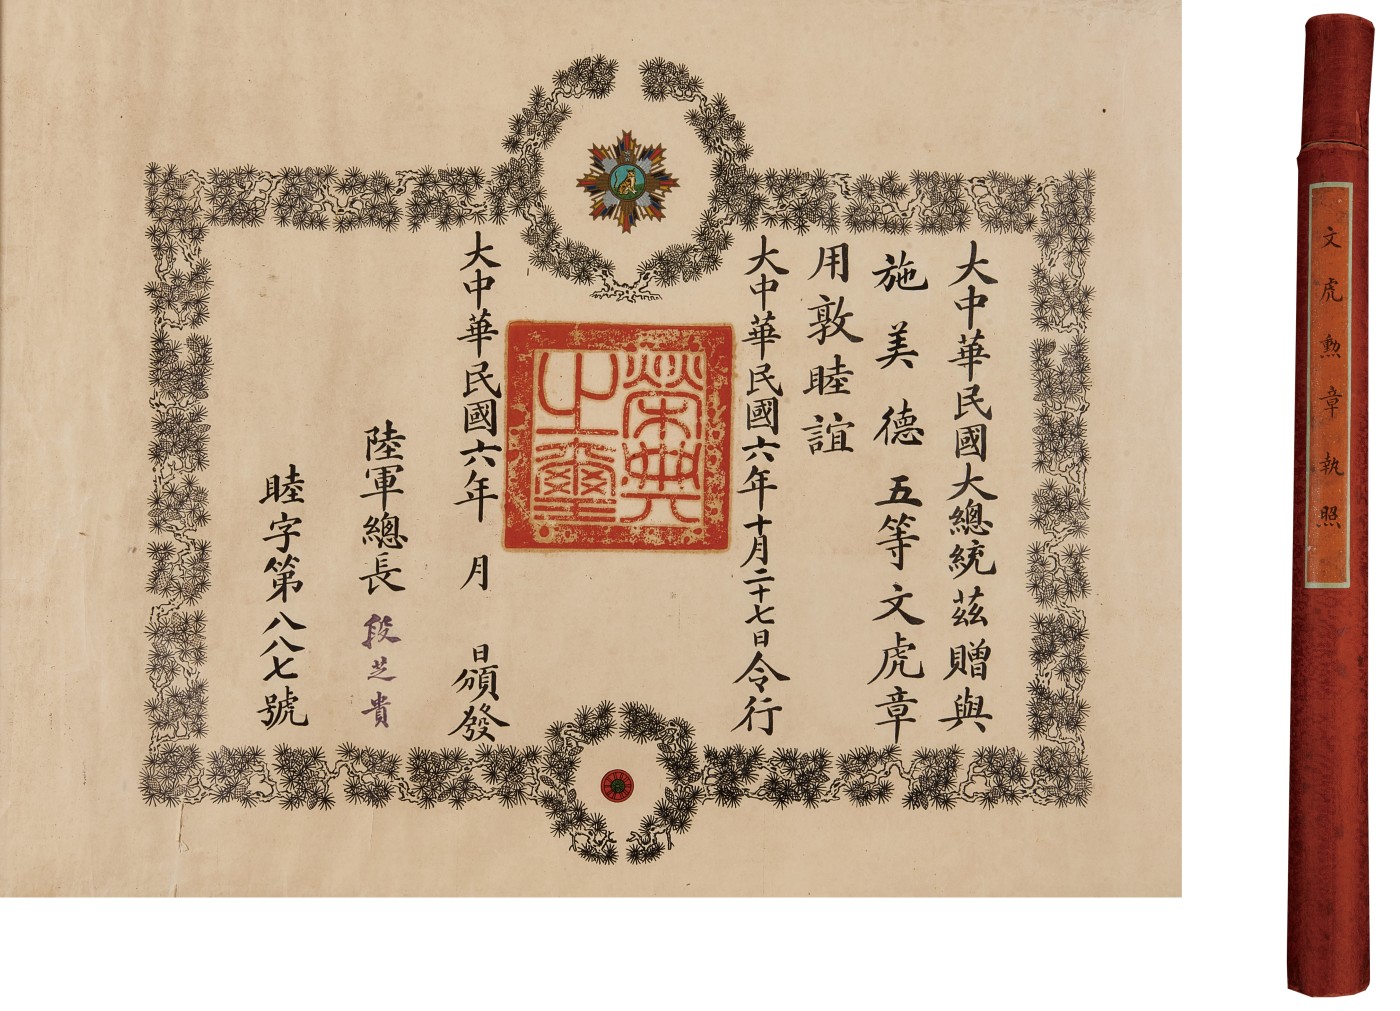 大中華民國大總統茲贈與
施美德五等文虎章
用敦睦誼
大中華民國六年十月二十七日令行
榮典之璽
大中華民國六年 月 日頒發
陸軍總長 段芝貴
睦字第八八七號
文虎勲章執照